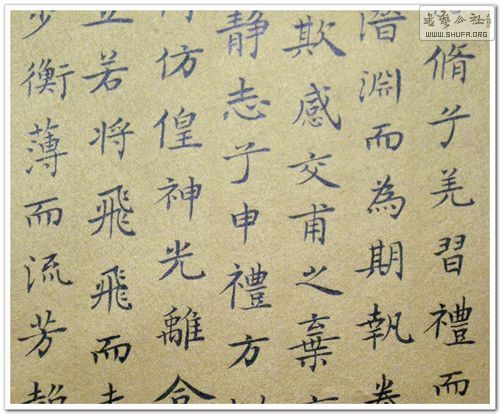 書藝公社
WWW.SHUFA.ORG
脩兮羌習禮而
潛淵而為期執眷
欺感交甫之棄
静志兮申禮方
仿偟神光離合
立若将飛飛而未
步衡薄而流芳